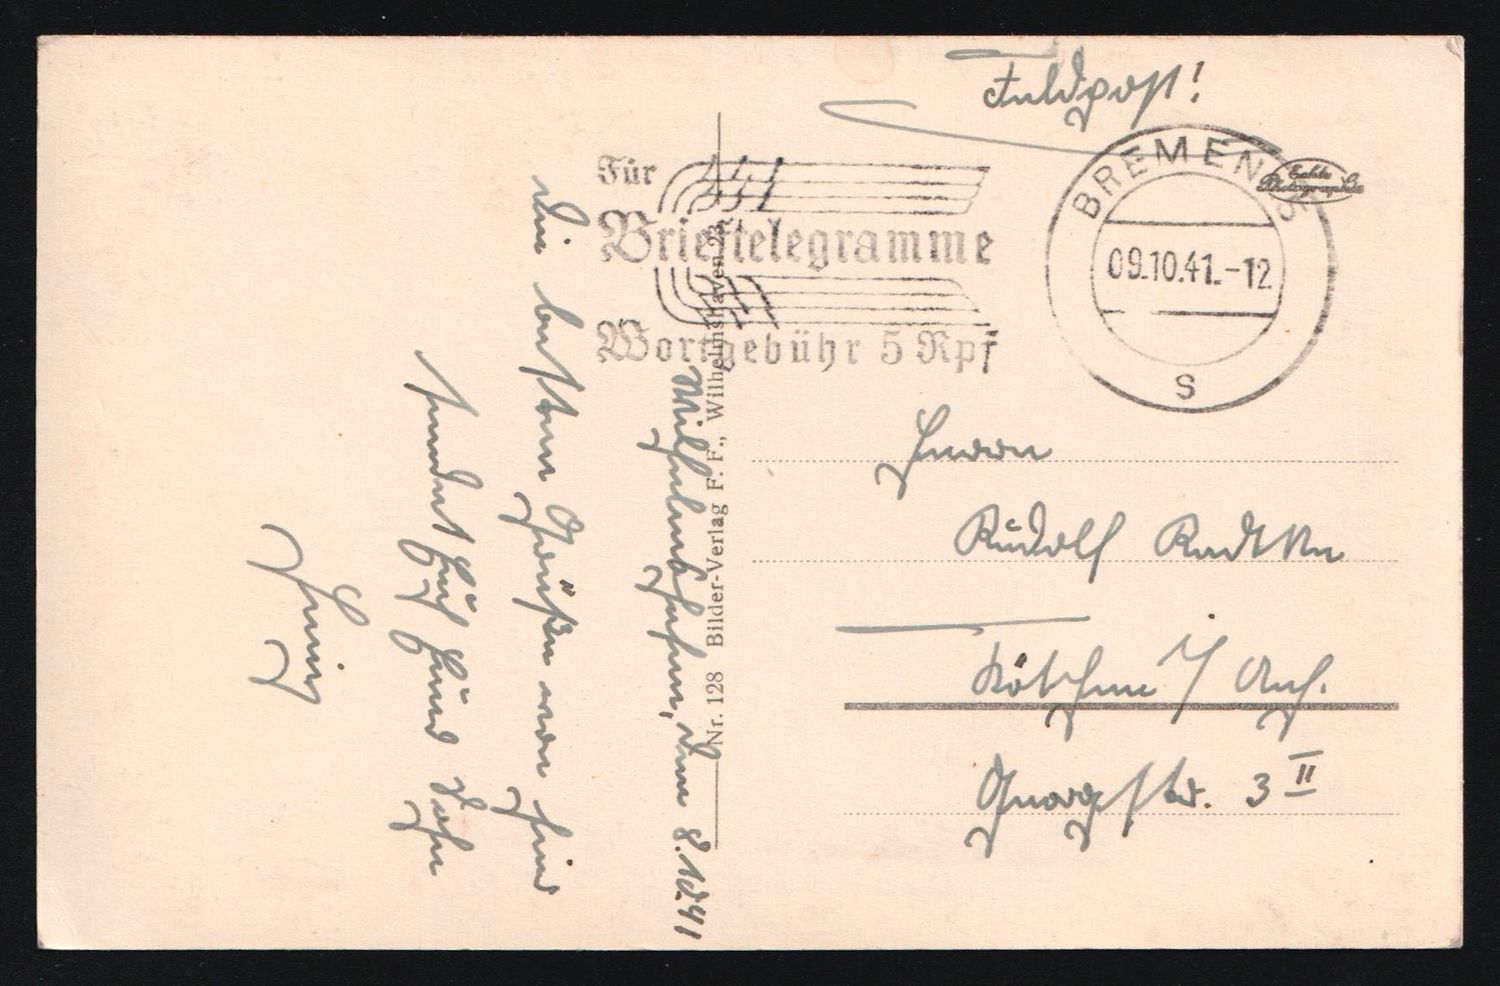 Feldpost!
Für
Brieftelegramme
Wortgebühr 5 Rpf
BREMEN 5
09.10.41.-12
S
Echte Photographie
Herrn
Rudolf Radtke
Köthen / Anh.
Georgstr. 3 II
Nr. 128 Bilder-Verlag F. F., Wilhelmshaven 23
Wilhelmshafen, den 8.10.41
Die besten Grüße von hier
sendet Euch Euer Sohn
Heini